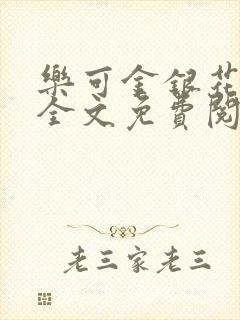 樂可金銀花
全文免費閱
老三家老三